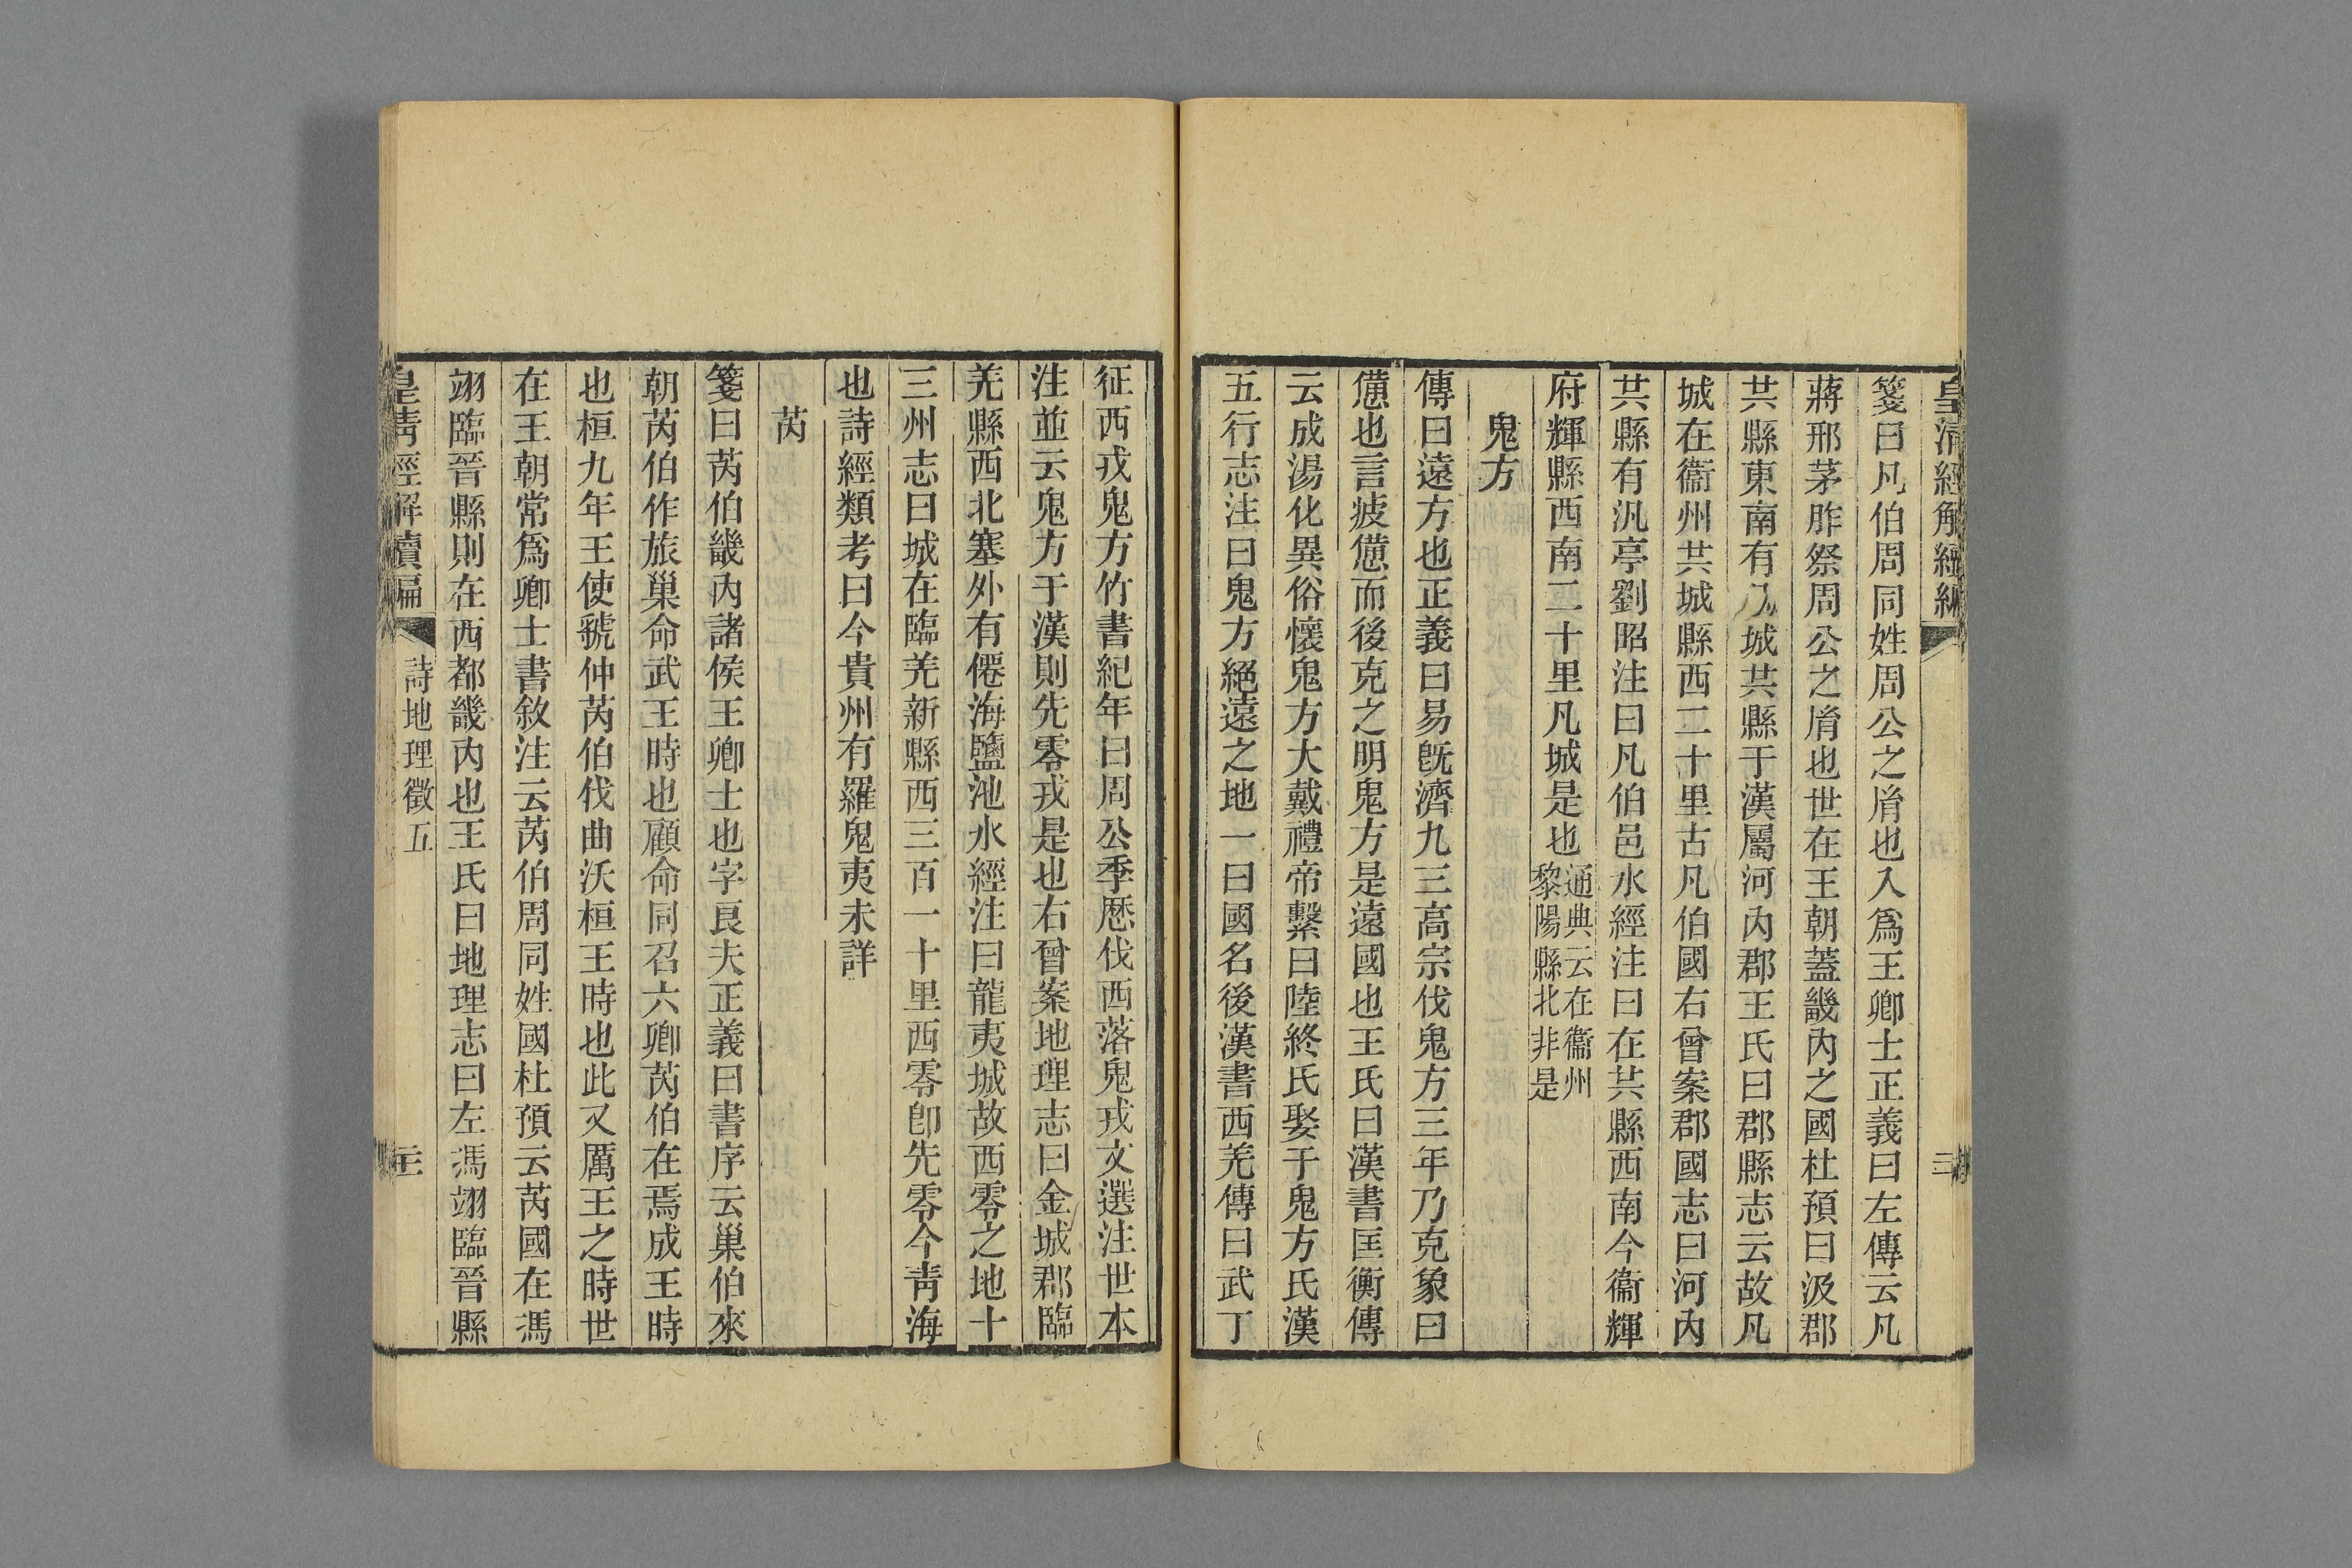 箋曰凡伯周同姓周公之胤也入爲王卿士正義曰左傳云凡
蔣邢茅胙祭周公之胤也世在王朝蓋畿內之國杜預曰汲郡
共縣東南有凡城共縣于漢屬河內郡王氏曰郡縣志云故凡
城在衞州共城縣西二十里古凡伯國右曾案郡國志曰河內
共縣有汎亭劉昭注曰凡伯邑水經注曰在共縣西南今衞輝
府輝縣西南二十里凡城是也通典云在衞州黎陽縣北非是
鬼方
傳曰遠方也正義曰易旣濟九三高宗伐鬼方三年乃克象曰
憊也言疲憊而後克之明鬼方是遠國也王氏曰漢書匡衡傳
云成湯化異俗懷鬼方大戴禮帝繫曰陸終氏娶于鬼方氏漢
五行志注曰鬼方絕遠之地一曰國名後漢書西羌傳曰武丁
征西戎鬼方竹書紀年曰周公季厯伐西落鬼戎文選注世本
注並云鬼方于漢則先零戎是也右曾案地理志曰金城郡臨
羌縣西北塞外有僊海鹽池水經注曰龍夷城故西零之地十
三州志曰城在臨羌新縣西三百一十里西零卽先零今靑海
也詩經類考曰今貴州有羅鬼夷未詳
芮
箋曰芮伯畿內諸侯王卿士也字良夫正義曰書序云巢伯來
朝芮伯作旅巢命武王時也顧命同召六卿芮伯在焉成王時
也桓九年王使虢仲芮伯伐曲沃桓王時也此又厲王之時世
在王朝常爲卿士書敘注云芮伯周同姓國杜預云芮國在馮
翊臨晉縣則在西都畿內也王氏曰地理志曰左馮翊臨晉縣
皇淸經解續編
詩地理徵五